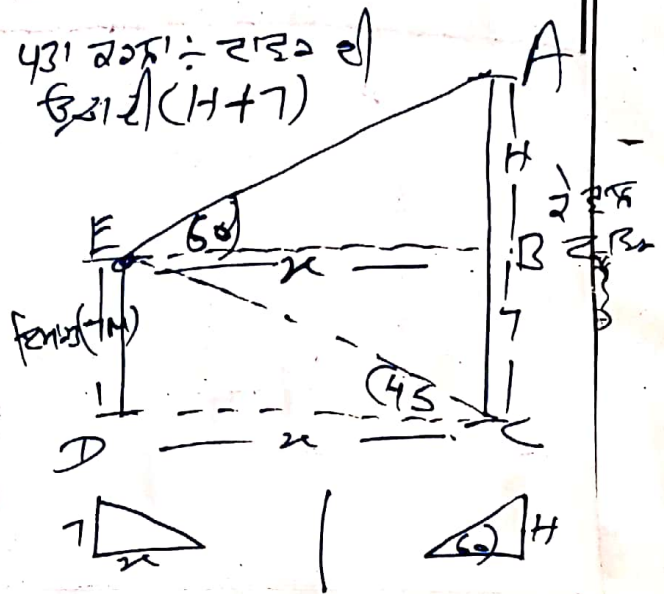 ਪਤਾ ਕਰਨਾ ÷ ਟਾਵਰ ਦੀ
ਉਚਾਈ (H+7)
A
H
E
60
x
B
7
(7M)
45
D
x
C
7
x
60
H